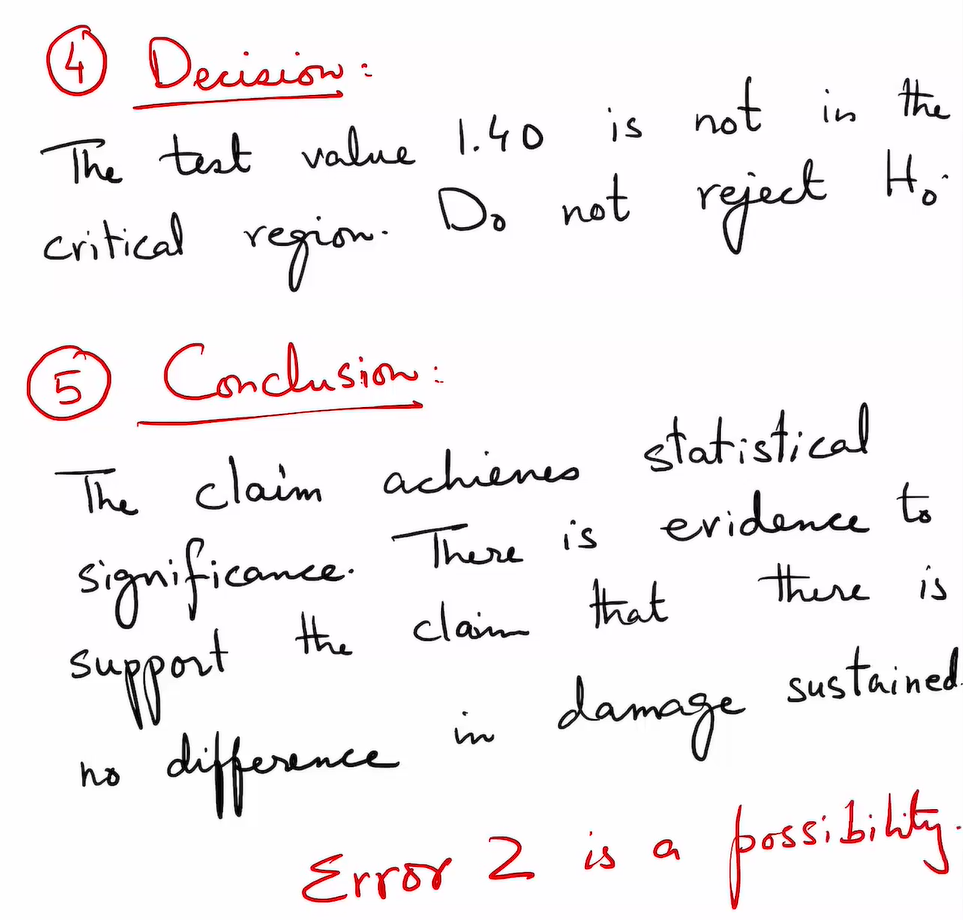 ④ Decision:
The test value 1.40 is not in the
critical region. Do not reject H₀.
⑤ Conclusion:
The claim achieves statistical
significance. There is evidence to
support the claim that there is
no difference in damage sustained.
Error 2 is a possibility.